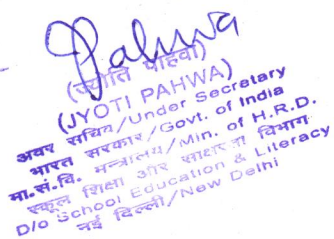 Pahwa
(ज्योति पाहवा)
(JYOTI PAHWA)
अवर सचिव/Under Secretary
भारत सरकार/Govt. of India
मा.सं.वि. मन्त्रालय/Min. of H.R.D.
स्कूल शिक्षा और साक्षरता विभाग
D/o School Education & Literacy
नई दिल्ली/New Delhi